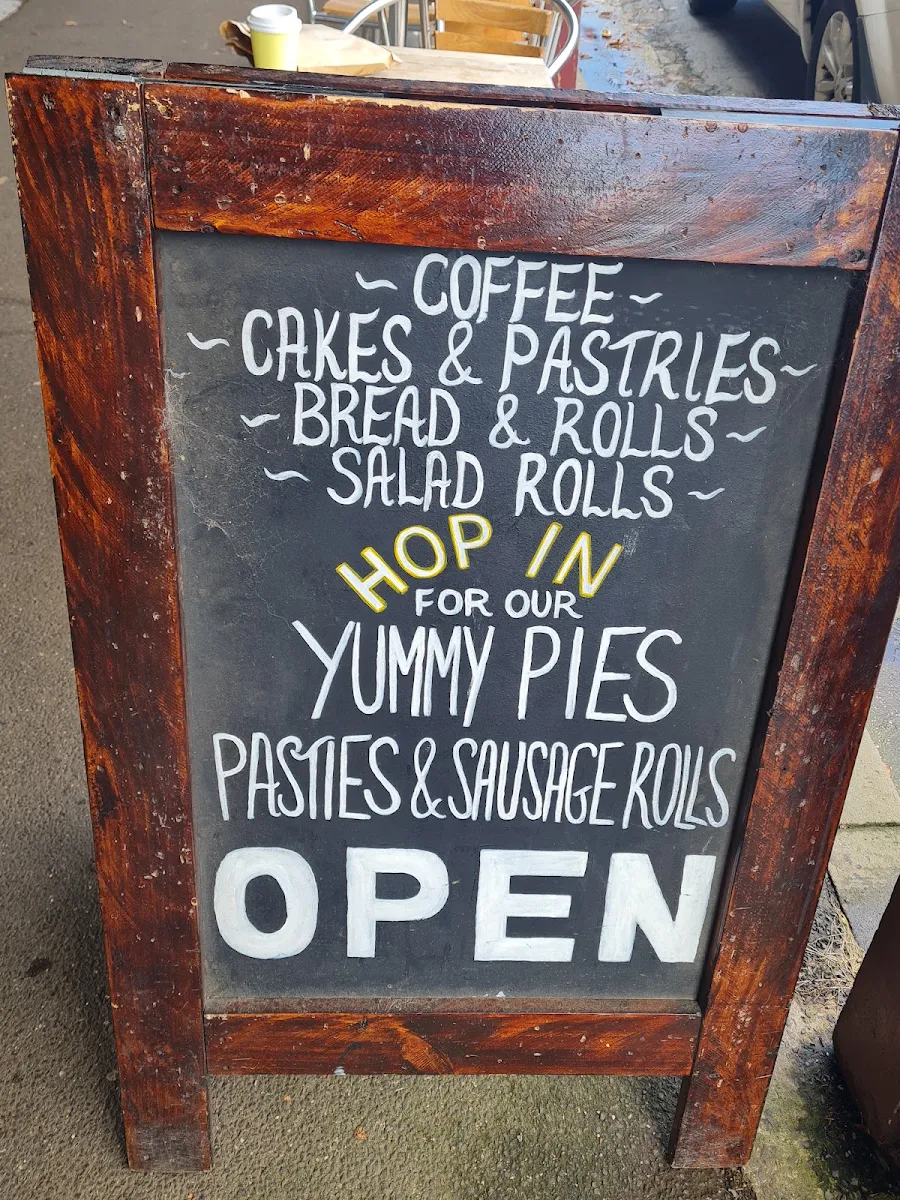 ~ COFFEE ~
~ CAKES & PASTRIES ~
~ BREAD & ROLLS ~
~ SALAD ROLLS ~
HOP IN
FOR OUR
YUMMY PIES
PASTIES & SAUSAGE ROLLS
OPEN